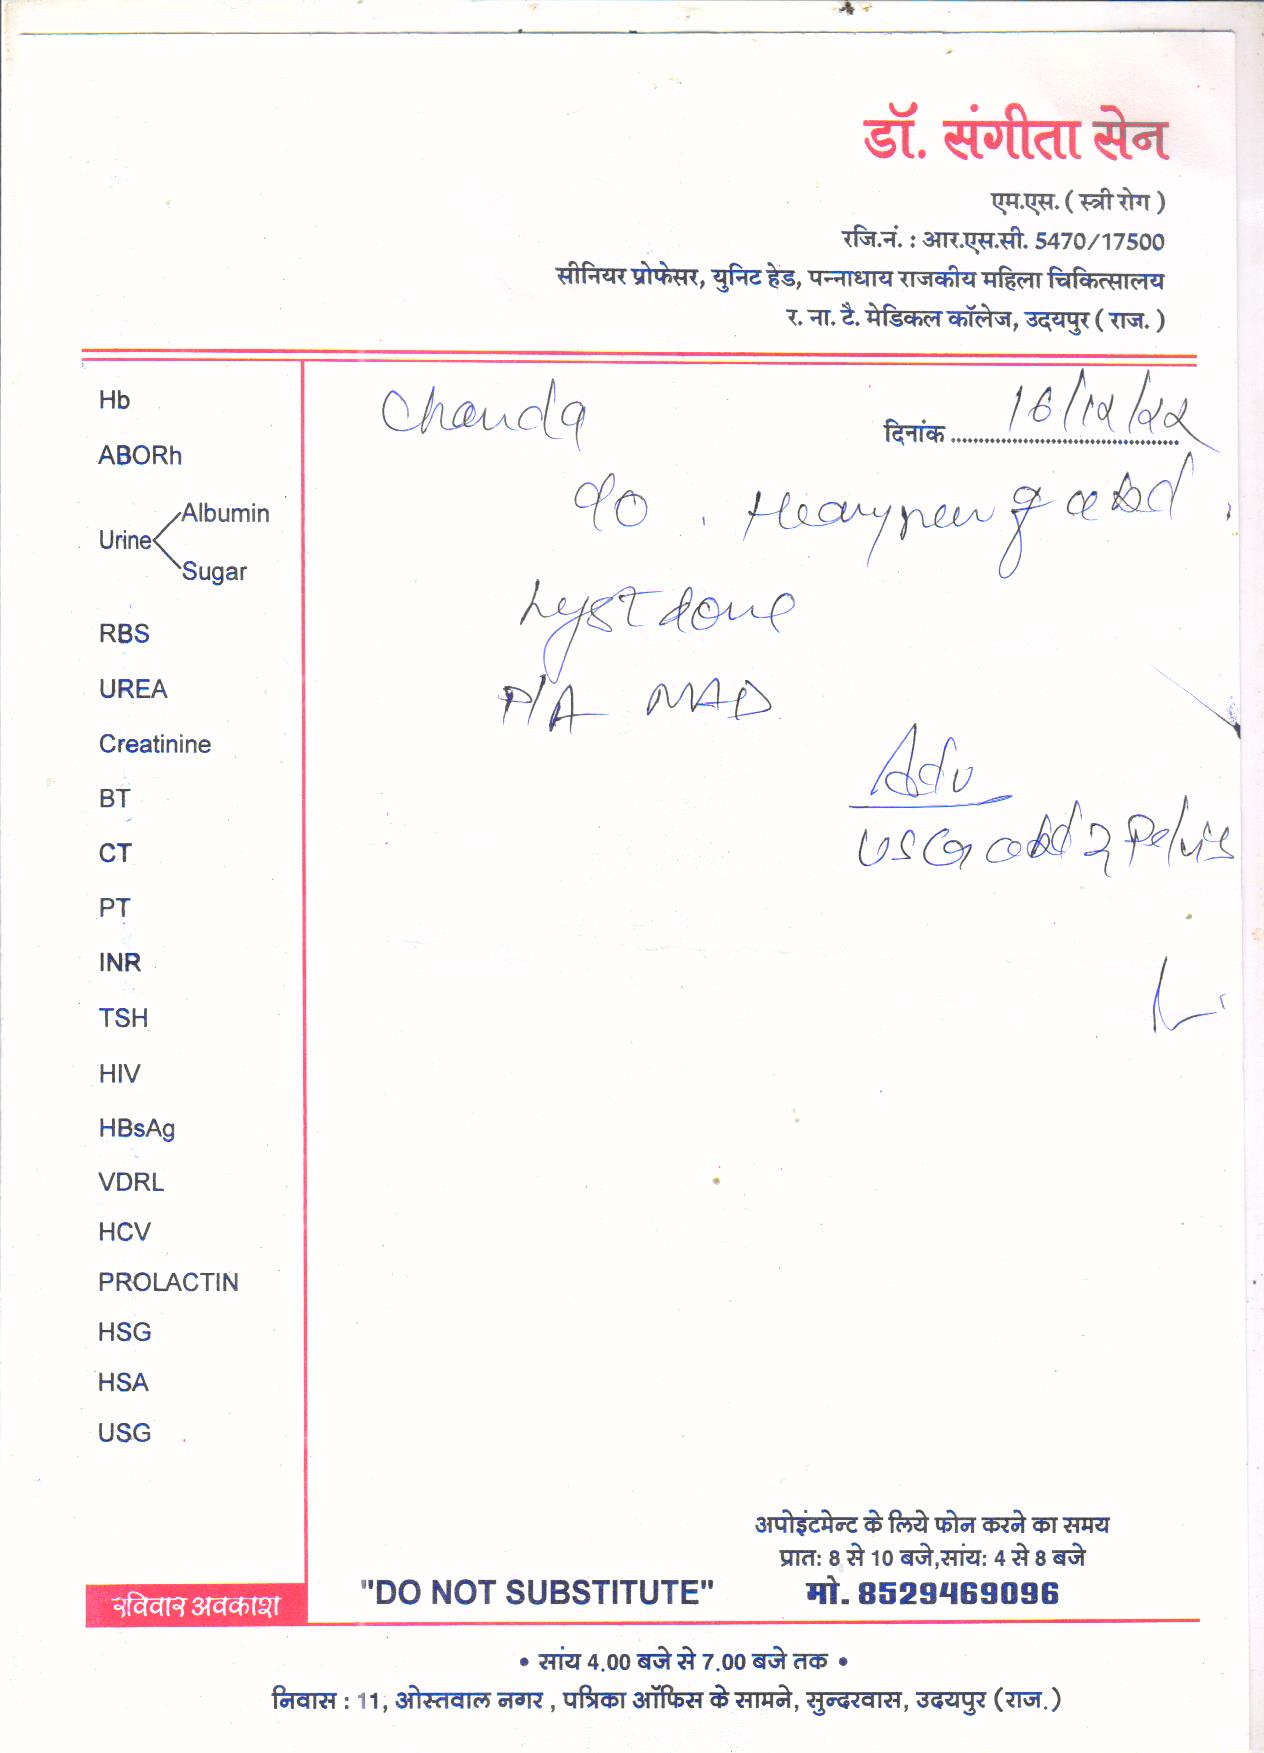 डॉ. संगीता सेन
एम.एस. ( स्त्री रोग )
रजि.नं. : आर.एस.सी. 5470/17500
सीनियर प्रोफेसर, युनिट हेड, पन्नाधाय राजकीय महिला चिकित्सालय
र. ना. टै. मेडिकल कॉलेज, उदयपुर ( राज. )
Chanda
दिनांक 16/12/22
Hb
ABORh
Urine Albumin
Sugar
RBS
UREA
Creatinine
BT
CT
PT
INR
TSH
HIV
HBsAg
VDRL
HCV
PROLACTIN
HSG
HSA
USG
c/o. Heavyness of abd.
hyst done
P/A NAD
Adv
USG abd & Pelvis
अपोइंटमेन्ट के लिये फोन करने का समय
प्रातः 8 से 10 बजे,सांयः 4 से 8 बजे
मो. 8529469096
"DO NOT SUBSTITUTE"
रविवार अवकाश
• सांय 4.00 बजे से 7.00 बजे तक •
निवास : 11, ओस्तवाल नगर , पत्रिका ऑफिस के सामने, सुन्दरवास, उदयपुर (राज.)